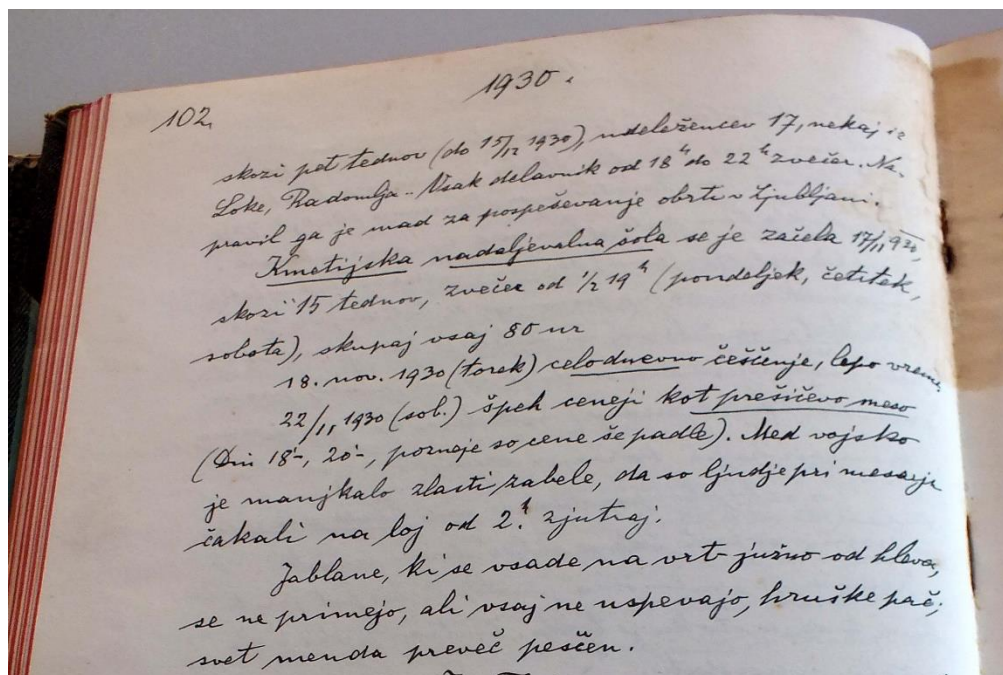 1930.
102.
skozi pet tednov (do 15/12 1930), udeležencev 17, nekaj iz
Loke, Radomlja.. Vsak delavnik od 18h do 22h zvečer. Na-
pravil ga je urad za pospeševanje obrti v Ljubljani.
Kmetijska nadaljevalna šola se je začela 17/11 930,
skozi 15 tednov, zvečer od 1/2 19h (pondeljek, četrtek,
sobota), skupaj vsaj 80 ur
18. nov. 1930 (torek) celodnevno češčenje, lepo vreme,
22/11 1930 (sob.) špeh ceneji kot prešičevo meso
(Din 18-, 20-, pozneje so cene še padle). Med vojsko
je manjkalo zlasti zabele, da so ljudje pri mesarju
čakali na loj od 2h zjutraj.
Jablane, ki se vsade na vrt južno od hleva,
se ne primejo, ali vsaj ne uspevajo, hruške pač;
svet menda preveč peščen.